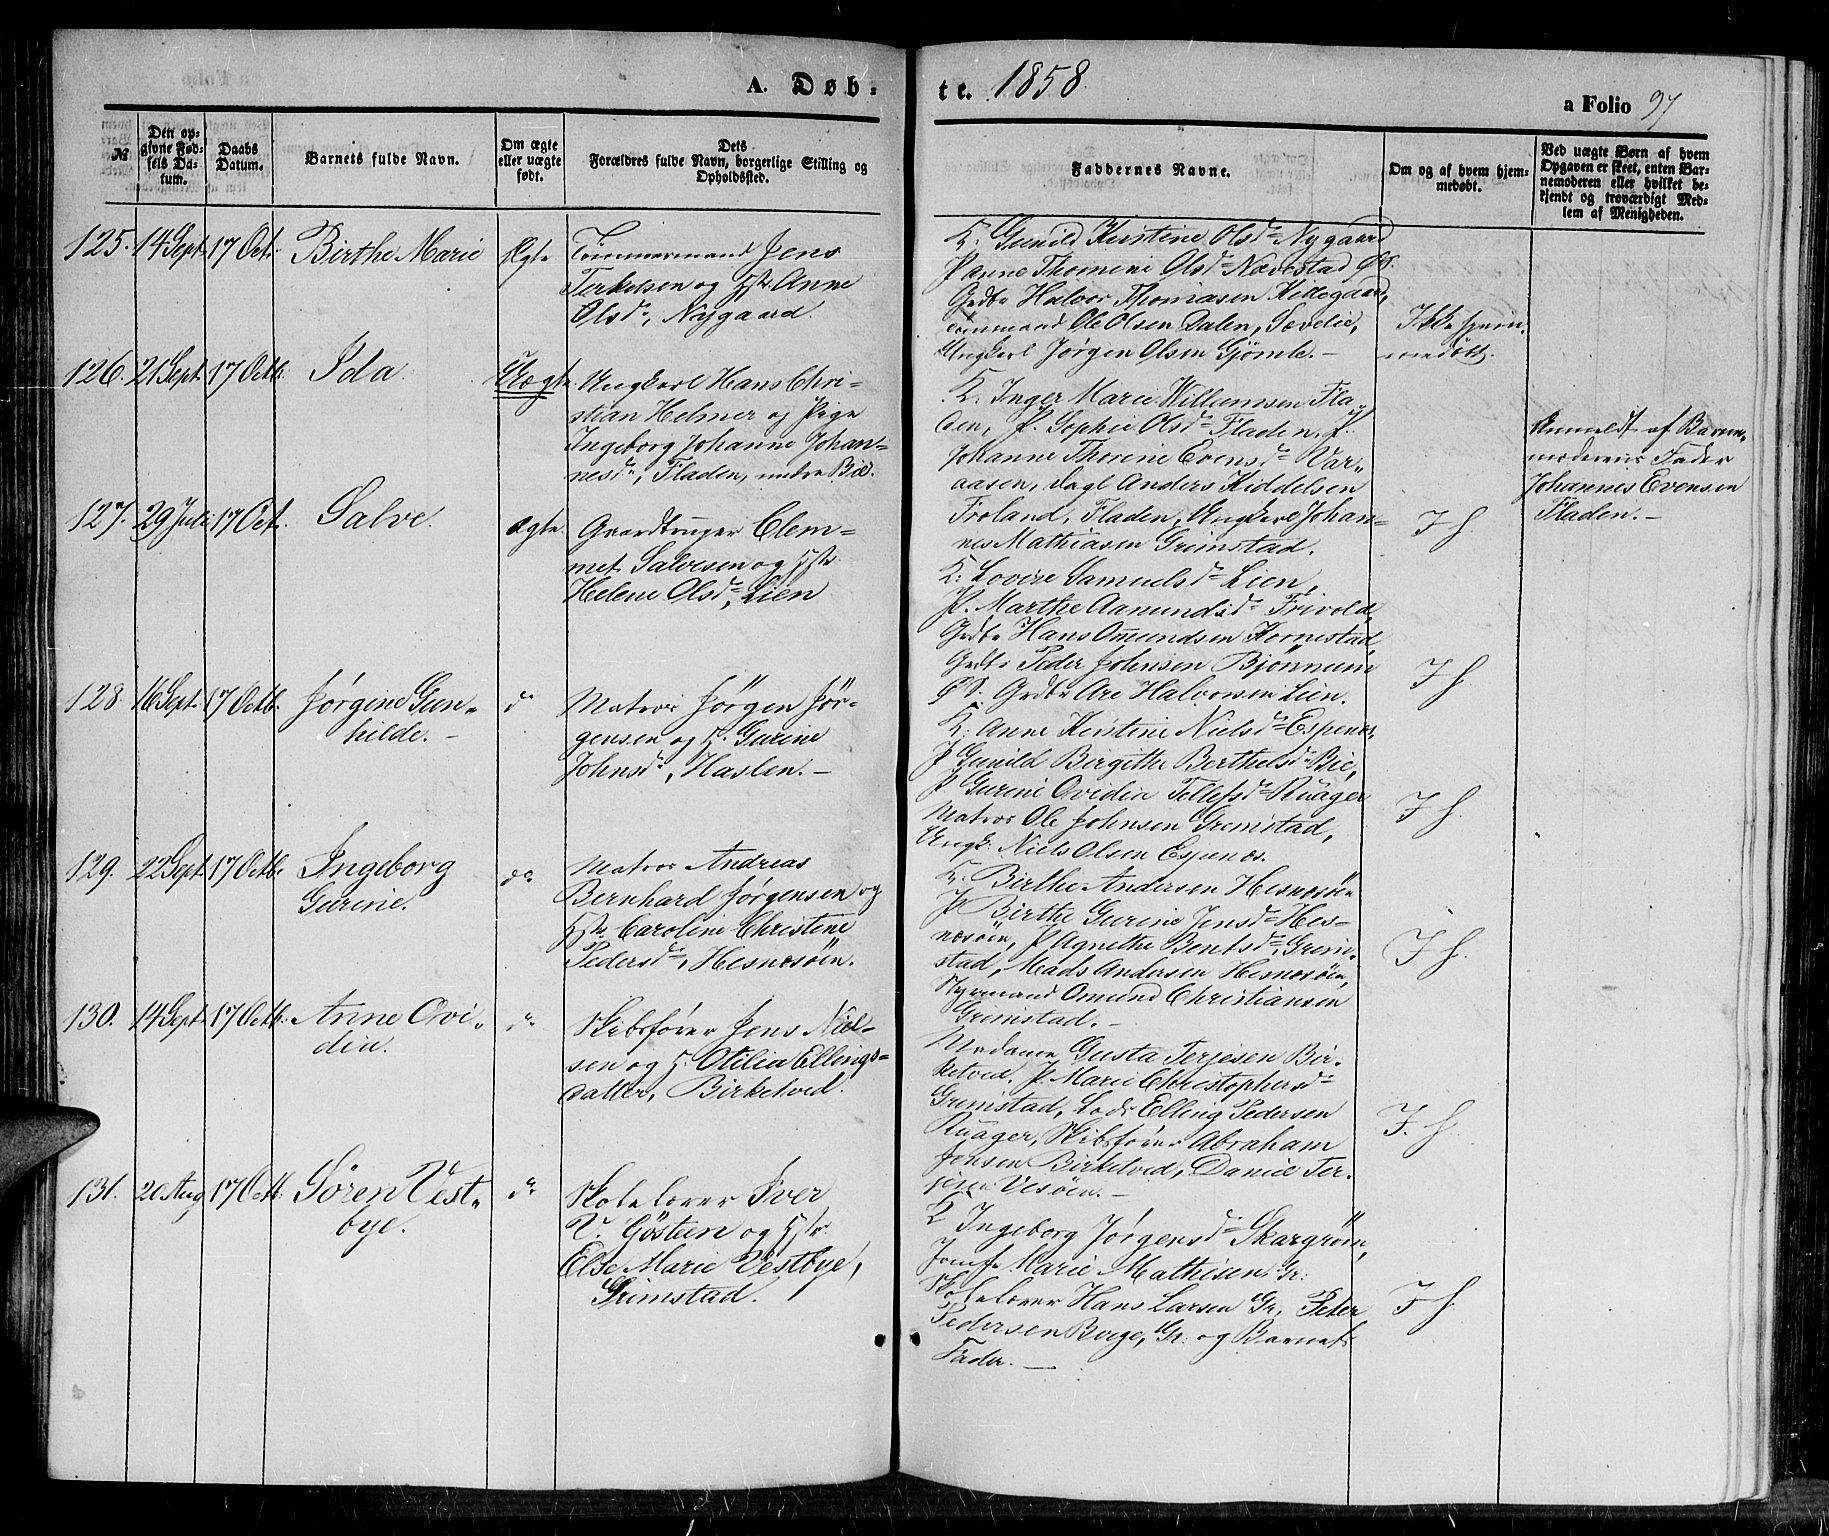 A. Døb-
te. 1858
a Folio 97
№
Den op-
givne Fød-
sels Da-
tum.
Daabs
Datum.
Barnets fulde Navn.
Om ægte
eller uægte
født.
Dets
Forældres fulde Navn, borgerlige Stilling og
Opholdssted.
Faddernes Navne.
Om og af hvem hjem-
medøbt.
Ved uægte Børn af hvem
Opgaven er skeet, enten Bar-
nemoderen eller hvilket be-
kjendt og troværdigt Med-
lem af Menigheden.
125. 14 Sept. 17 Oct. Birthe Marie Ægte
Tømmermand Jens
Terkelsen og Hstr Anne
Olsdr, Nygaard.
K. Gunild Kirstine Olsdr Nygaard
P Anne Thomine Olsdr Nævestad ØS.
Grdbr Halvor Thomasen Kidegaard,
Tømmermand Ole Olsen Dalen, Sævelie,
Ungkarl Jørgen Olsen Gjømle. -
Ikke hjem-
medøbt.
126. 21 Sept. 17 Octb. Ida Uægte
Ungkarl Hans Chri-
stian Helmer og Pige
Ingeborg Johanne Johan-
nesdr, Fladen, under Bie.
K. Inger Marie Willumsen Fla-
den, P. Sophie Olsdr Fladen, P.
Johanne Thorine Evensdr Var-
aasen, Dagl Anders Kiddelsen
Froland, Fladen, Ungkarl Johan-
nes Mathiasen Grimstad.
I H
Anmeldt af Barne-
moderens Fader
Johannes Evensen
Fladen. -
127. 29 Juli 17 Oct. Salve. ægte
Gaardbruger Clem-
met Salvesen og Hstr
Helene Olsdr, Lien
K. Lovise Samuelsdr Lien,
P. Marthe Aamundsdr Frivold,
Grdbr Hans Omundsen Kornestad
Grdbr Peder Johnsen Bjønnum
ØS. Grdbr Are Halvorsen Lien.
I H
128 16 Sept. 17 Octb. Jørgine Gun-
hilde. - do
Matros Jørgen Jør-
gensen og H. Gurine
Johnsdr, Haslen. -
K. Anne Kirstine Nielsdr Espenes,
P Gunild Birgitte Berthelsdr Bie,
P Gurine Ovidia Tellefsdr Ruager
Matros Ole Johnsen Grimstad,
Ungk. Niels Olsen Espenes.
I H
129. 22 Sept. 17 Octb. Ingeborg
Gurine. do
Matros Andreas
Bernhard Jørgensen og
Hstr Caroline Christine
Pedersdr, Hesnesøen.
K. Birthe Andersen Hesnesøen
P Birthe Gurine Jensdr Hes-
nesøen, P Agnethe Bentsdr Grim-
stad, Mads Andersen Hesnesøen,
Styrmand Omund Christiansen
Grimstad. -
I H.
130. 14 Sept. 17 Octb. Anne Ovi-
dia. do
Skibsfører Jens Niel-
sen og H. Otilia Ellings-
datter, Birketved.
Madame Gusta Terjesen Bir-
ketved, P Marie Christophersdr
Grimstad, Lods Elling Pedersen
Ruager, Skibsfører Abraham
Jensen Birketved, Daniel Ter-
jesen Vesøen. -
I. H.
131. 20 Aug 17 Octb. Søren Vest-
bye. do
Skolelærer Iver
V. Gösteen og Hstr
Else Marie Vestbye,
Grimstad.
K Ingeborg Jørgensdr Skargrøen,
Jomf. Marie Mathisen Gr:
Skolelærer Hans Larsen Gr, Peter
Pedersen Berge, Gr: og Barnets
Fader. -
I H